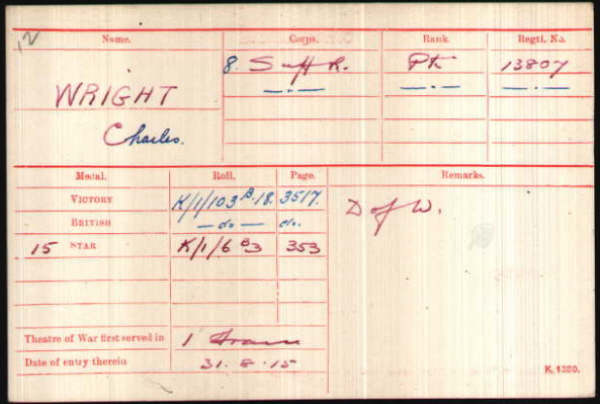 12
Name. Corps. Rank. Regtl. No.
WRIGHT 8. Suff R. Pte 13807
Charles. — . — — . — — . —
Medal. Roll. Page. Remarks.
VICTORY K/1/103 B.18. 3517. D of W.
BRITISH — do — do.
15 STAR K/1/6 B3 353
Theatre of War first served in 1 France
Date of entry therein 31.8.15
K. 1380.